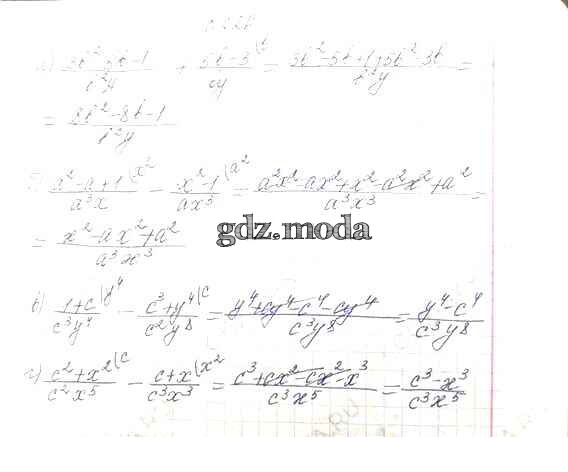 а) (3b²-5b-1)/(b²y) + (5b-3 \b)/(by) = (3b²-5b-1+5b²-3b)/(b²y) =
= (8b²-8b-1)/(b²y)
б) (a²-a+1 \x²)/(a³x) - (x²-1 \a²)/(ax³) = (a²x²-ax²+x²-a²x²+a²)/(a³x³) =
= (x²-ax²+a²)/(a³x³)
gdz.moda
в) (1+c \y⁴)/(c³y⁴) - (c³+y⁴ \c)/(c²y⁸) = (y⁴+cy⁴-c⁴-cy⁴)/(c³y⁸) = (y⁴-c⁴)/(c³y⁸)
г) (c²+x² \c)/(c²x⁵) - (c+x \x²)/(c³x³) = (c³+cx²-cx²-x³)/(c³x⁵) = (c³-x³)/(c³x⁵)